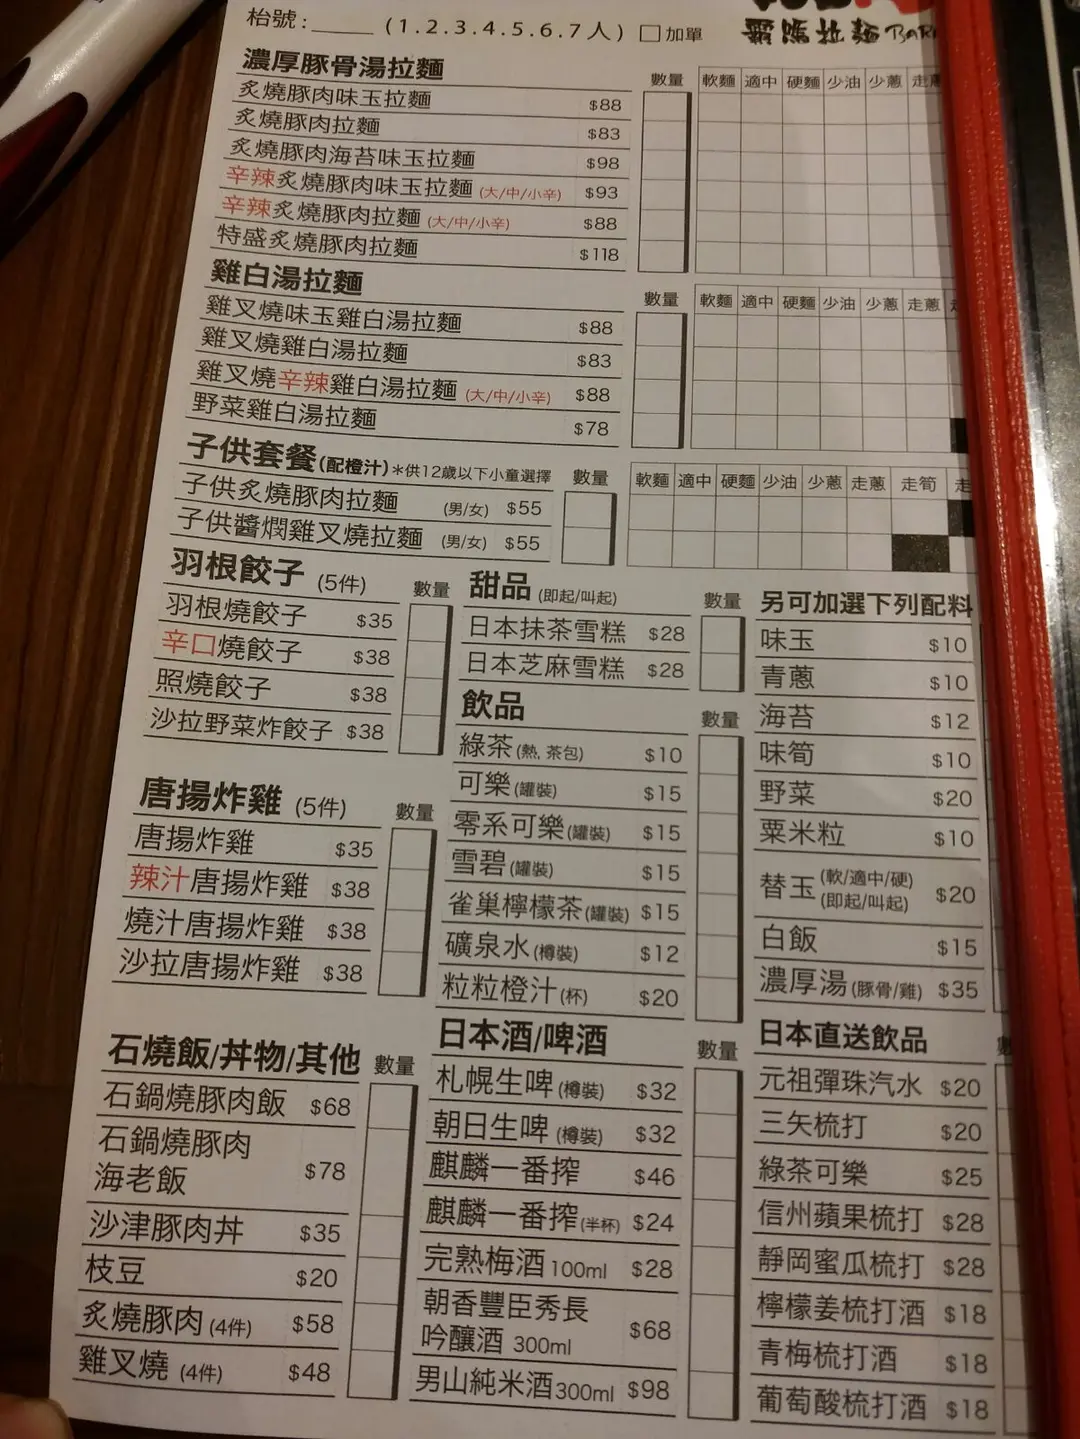 枱號: (1.2.3.4.5.6.7人) 加單
拉麵 BAR
濃厚豚骨湯拉麵 數量 軟麵 適中 硬麵 少油 少蔥
炙燒豚肉味玉拉麵 $88
炙燒豚肉拉麵 $83
炙燒豚肉海苔味玉拉麵 $98
辛辣炙燒豚肉味玉拉麵 (大/中/小辛) $93
辛辣炙燒豚肉拉麵 (大/中/小辛) $88
特盛炙燒豚肉拉麵 $118
雞白湯拉麵 數量 軟麵 適中 硬麵 少油 少蔥 走蔥
雞叉燒味玉雞白湯拉麵 $88
雞叉燒雞白湯拉麵 $83
雞叉燒辛辣雞白湯拉麵 (大/中/小辛) $88
野菜雞白湯拉麵 $78
子供套餐(配橙汁)*供12歲以下小童選擇 數量 軟麵 適中 硬麵 少油 少蔥 走蔥 走筍 走
子供炙燒豚肉拉麵 (男/女) $55
子供醬燜雞叉燒拉麵 (男/女) $55
羽根餃子 (5件) 數量
羽根燒餃子 $35
辛口燒餃子 $38
照燒餃子 $38
沙拉野菜炸餃子 $38
唐揚炸雞 (5件) 數量
唐揚炸雞 $35
辣汁唐揚炸雞 $38
燒汁唐揚炸雞 $38
沙拉唐揚炸雞 $38
石燒飯/丼物/其他 數量
石鍋燒豚肉飯 $68
石鍋燒豚肉
海老飯 $78
沙津豚肉丼 $35
枝豆 $20
炙燒豚肉 (4件) $58
雞叉燒 (4件) $48
甜品 (即起/叫起) 數量
日本抹茶雪糕 $28
日本芝麻雪糕 $28
飲品 數量
綠茶(熱, 茶包) $10
可樂(罐裝) $15
零系可樂(罐裝) $15
雪碧(罐裝) $15
雀巢檸檬茶(罐裝) $15
礦泉水(樽裝) $12
粒粒橙汁(杯) $20
日本酒/啤酒 數量
札幌生啤(樽裝) $32
朝日生啤(樽裝) $32
麒麟一番搾 $46
麒麟一番搾(半杯) $24
完熟梅酒100ml $28
朝香豐臣秀長
吟釀酒 300ml $68
男山純米酒300ml $98
另可加選下列配料
味玉 $10
青蔥 $10
海苔 $12
味筍 $10
野菜 $20
粟米粒 $10
替玉(軟/適中/硬) (即起/叫起) $20
白飯 $15
濃厚湯(豚骨/雞) $35
日本直送飲品
元祖彈珠汽水 $20
三矢梳打 $20
綠茶可樂 $25
信州蘋果梳打 $28
靜岡蜜瓜梳打 $28
檸檬姜梳打酒 $18
青梅梳打酒 $18
葡萄酸梳打酒 $18